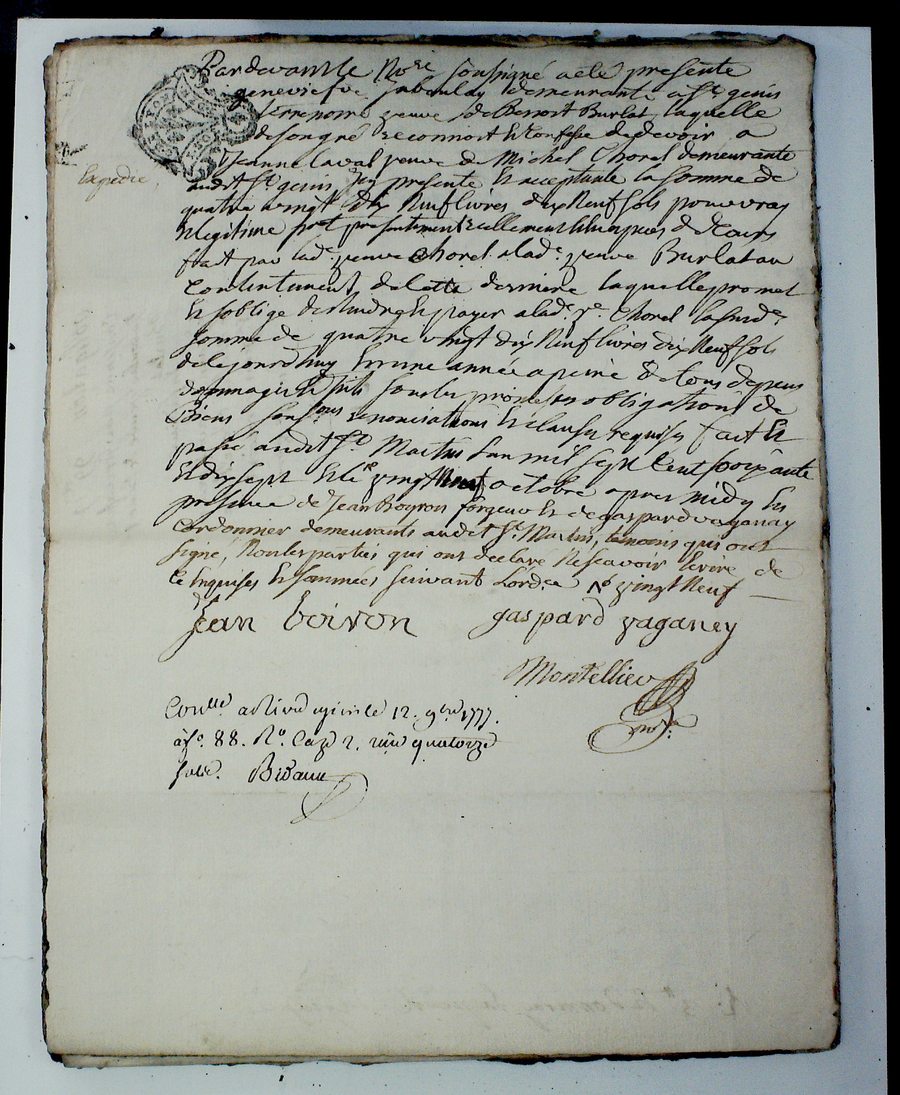 Pardevant le No.re soussigné a été presente
genevieve Jaboulay demeurante a St. genis
terrenoire veuve de Benoit Burlat, laquelle
de son gré reconnoit et confesse devoir a
Jeanne laval veuve de Michel Chorel demeurante
audit St. genis icy presente et acceptante la somme de
quatre vingt dix Neuf livres dix Neuf sols pour vray
et legitime pret presentement reellement en especes de cours
fait par lad. veuve Chorel a lad. veuve Burlat au
contentement de cette derniere laquelle promet
et s'oblige de rendre et payer a lad. ve. Chorel la sud.e
somme de quatre vingt dix Neuf livres dix Neuf sols
de ce jourdhuy en une année a peine de tous depens
dommages sous les promesses obligations de
Biens sous renonciations et clauses requises fait et
passé audit St. Martin l'an mil sept cent soixante
et dix sept et le vingt neuf octobre apres midy en
presence de Jean Boyron forgeur et de gaspard vaganay
Cordonnier demeurants audit St. Martin, temoins qui ont
signé, Non les parties qui ont declaré Ne scavoir écrire de
ce enquises et sommées suivant L'ord.ce vingt Neuf
Expedié
Jean boiron gaspard vaganey
Montellier
no.re
Con.lle a Rivedegier le 12. 9bre 1777.
a fo. 88. Ro. Caze 2. reçu quatorze
sols.